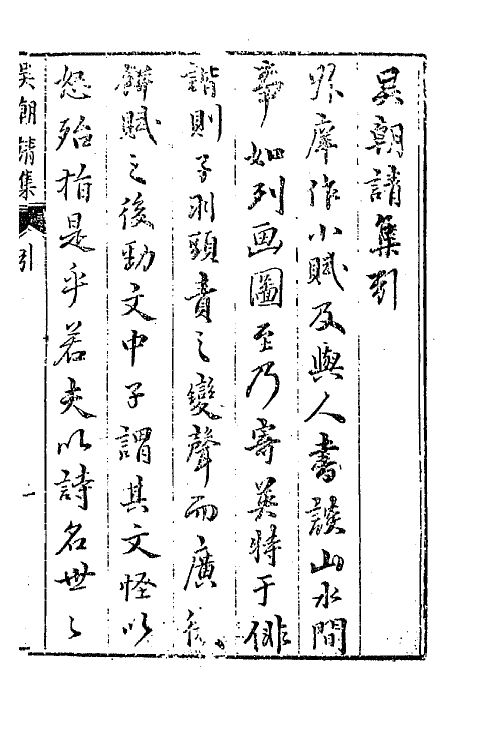 吳朝請集引
叔庠作小賦及與人書談山水間
事如列画圖至乃寄英特于俳
諧則子羽頭責之變聲而廣微
餅賦之後勁文中子謂其文怪以
怒殆指是乎若夫以詩名世之
吳朝請集 引 一